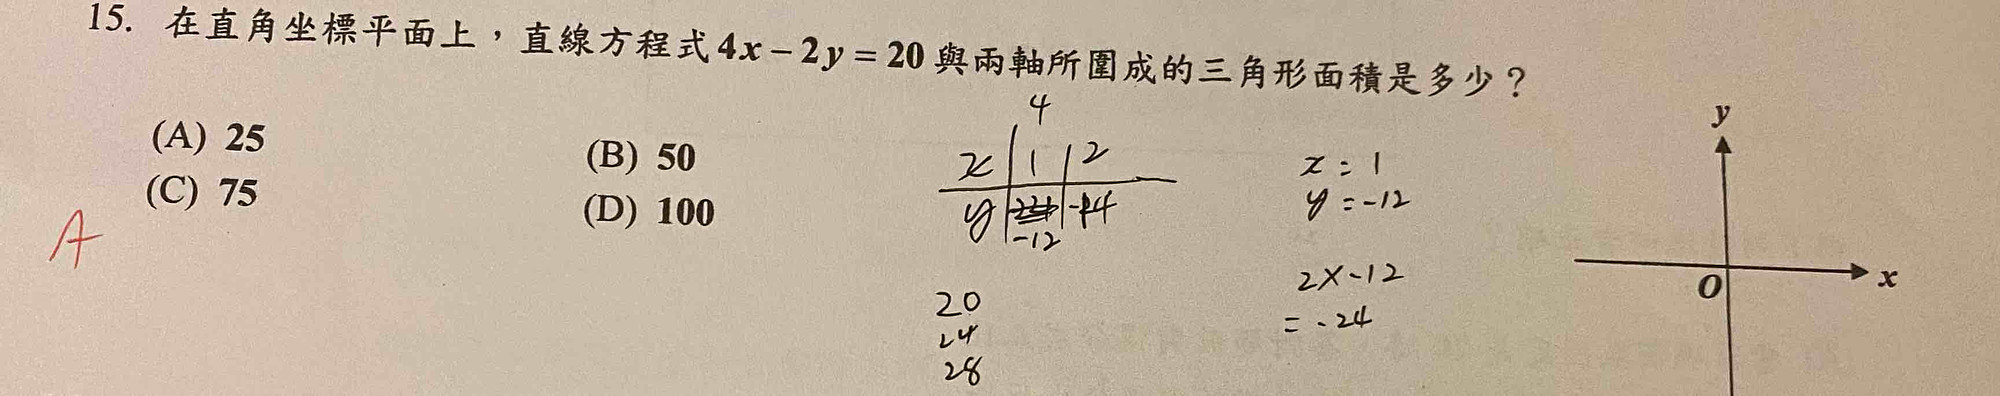 15. 在直角坐標平面上，直線方程式 4x − 2y = 20 與兩軸所圍成的三角形面積是多少？
(A) 25
(B) 50
(C) 75
(D) 100
A
4
x 1 2
y -14
-12
20
24
28
x = 1
y = -12
2x-12
= -24
y
O
x